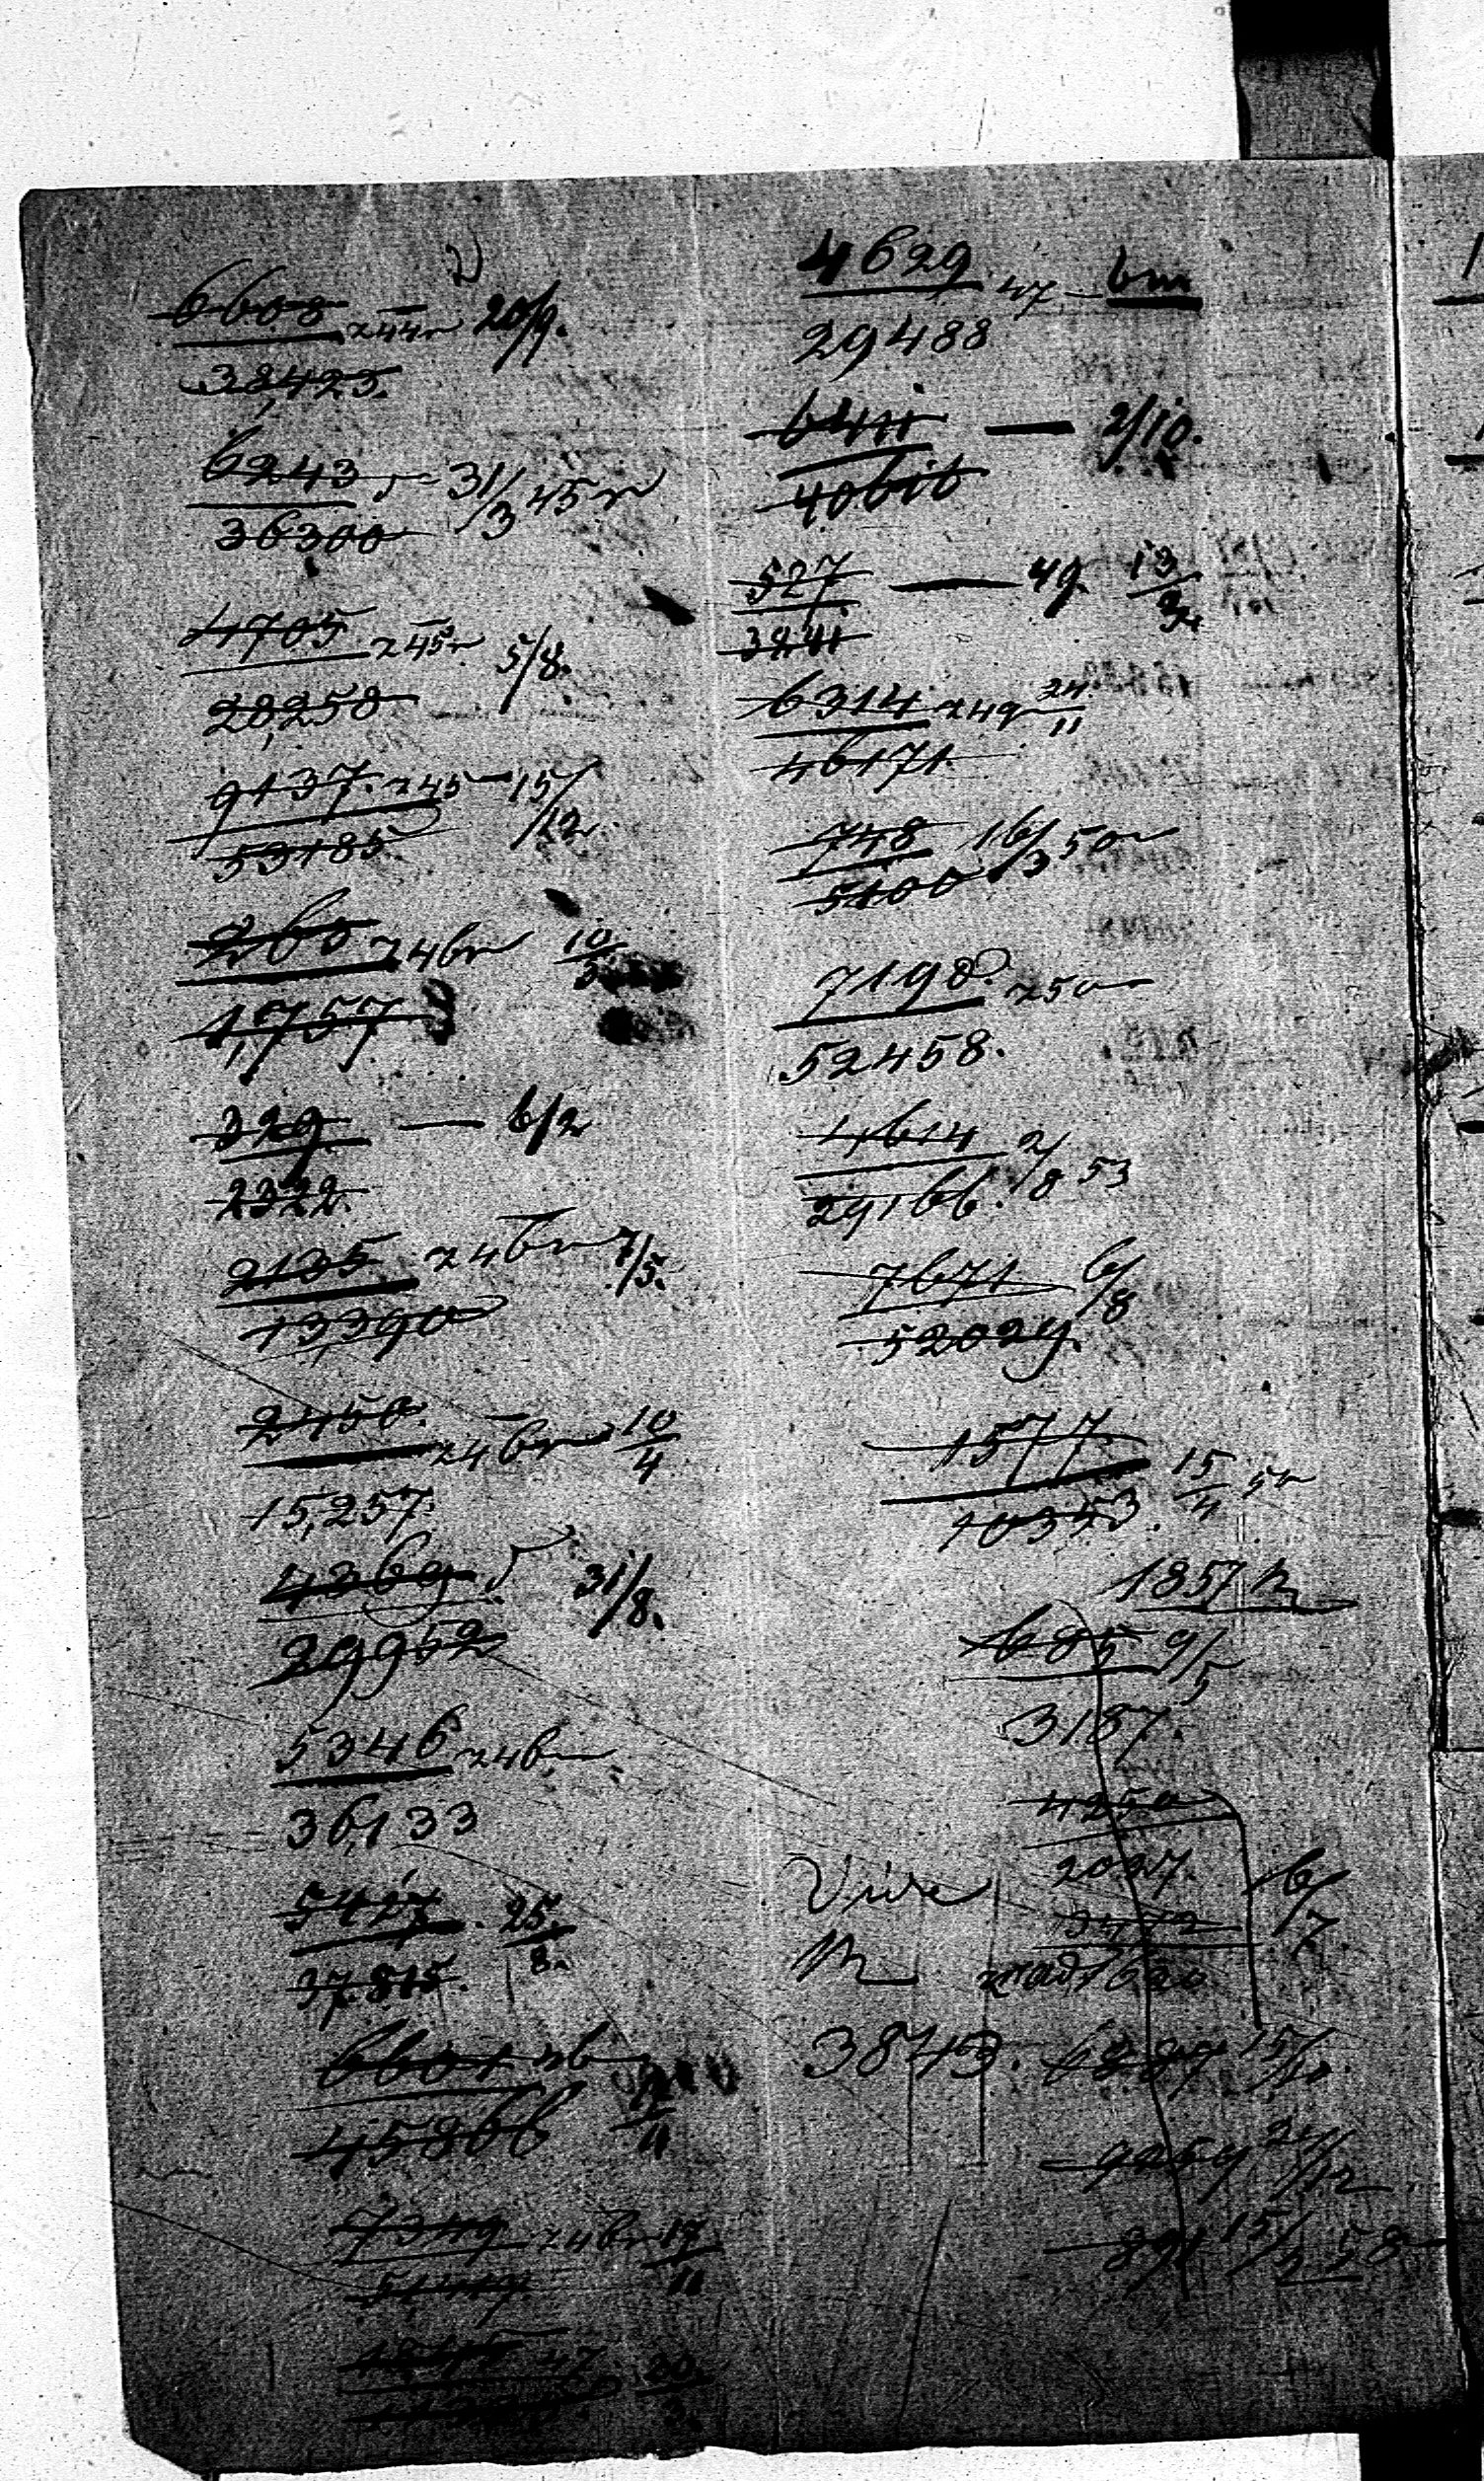 6608 z 44 r 20/9.
38,423.
6243 31/3 45 r
36300
4705 z 45 r 5/8.
28,258
9137. z 45 15/12
53185
260 z 46 r 10/3
1,757
329 — 6/2
2322.
2135 z 46 r 7/5.
13390
2450. z 46 r 10/4
15,257.
4369 31/8.
29952
5346 z 46 r
36,133
5427. 25/8.
37,815.
6601 46 12/11
45866
7349 z 46 r 17/11
47 20/3
4629 47 — 6m
29488
6411 — 2/10.
40616
527 — 49 13/3
3241
6314 z 49 24/11
46171
748 16/3 50 r
5100
7198. z 50
52458.
4614 2/8 53
29166.
7671 6/8
52029.
1577. 15/4
10353.
1857 r
685 9/5
3187.
4250
2027. 6/7
Vide 3472
nad 1620
3843. 15/10
9259 24/12
891 15/2 58